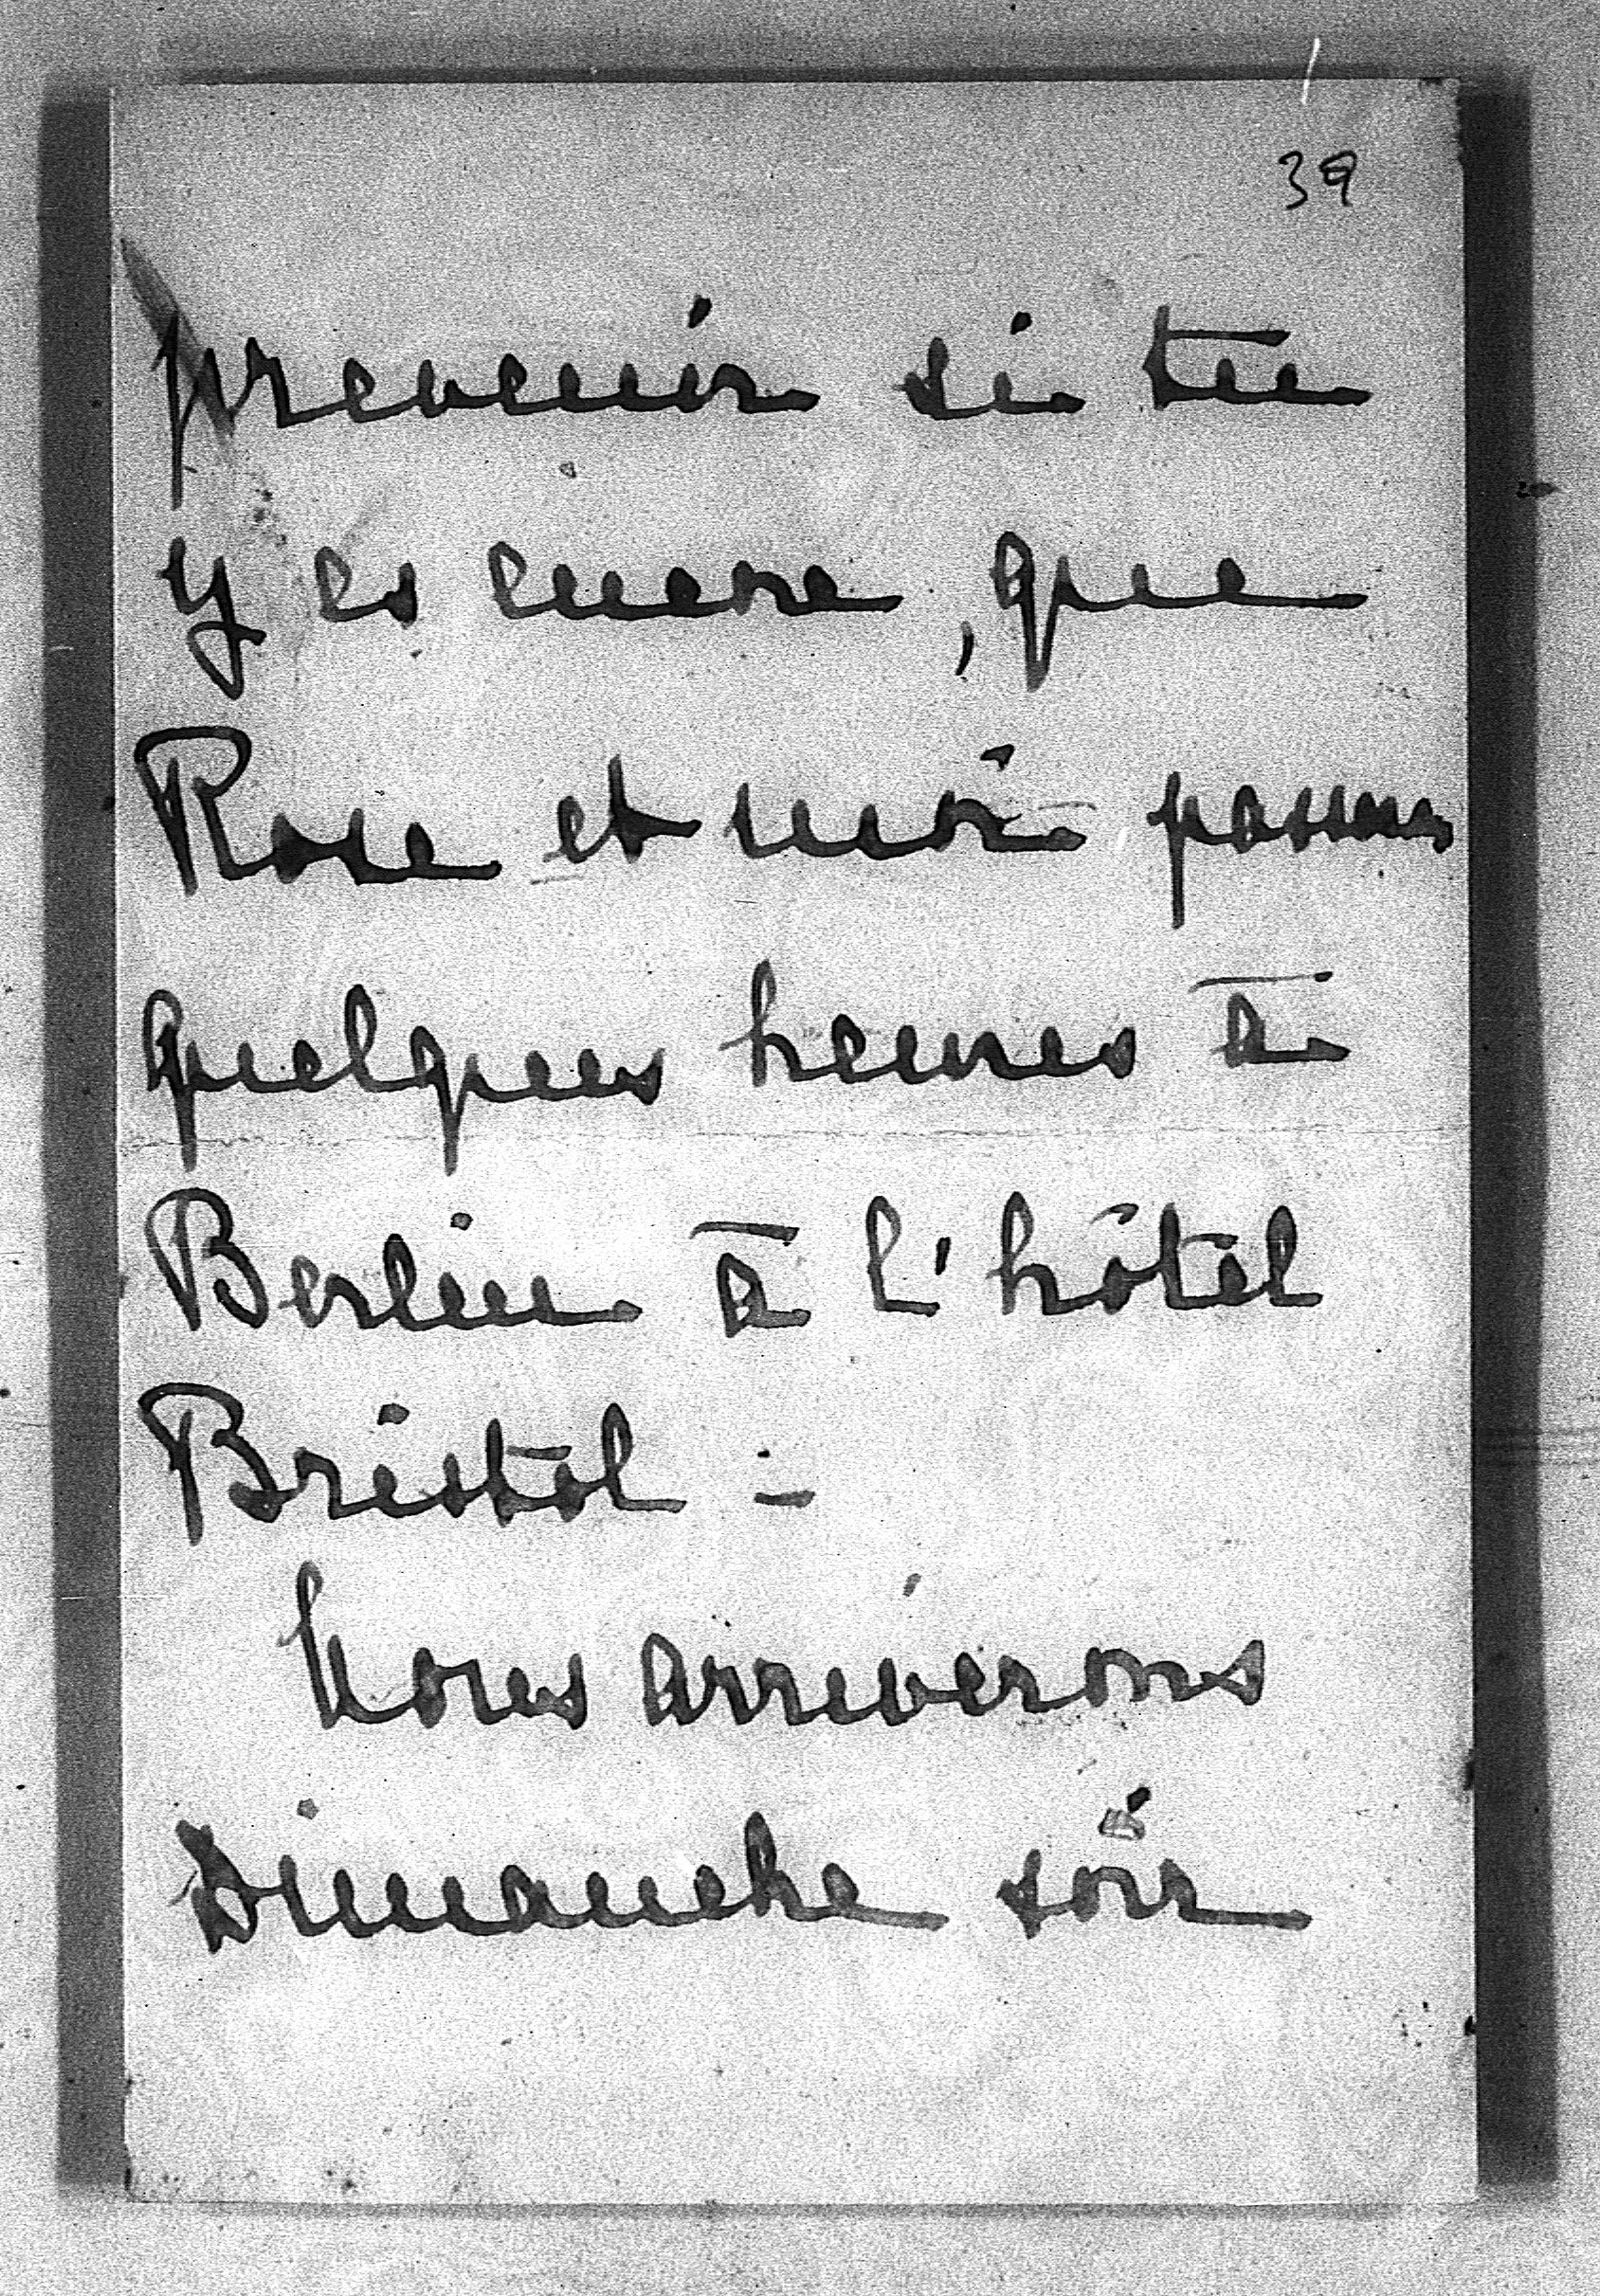 39
prevenir si tu
y es encore, que
Rose et moi passons
quelques heures à
Berlin à l'hôtel
Bristol -
Nous arriverons
Dimanche soir